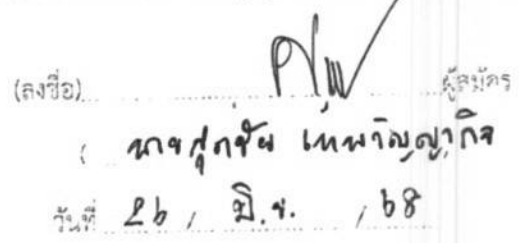 (ลงชื่อ) ผู้สมัคร
( นายศุภชัย เทพวิญญากิจ
วันที่ 26 / มิ.ย. / 68